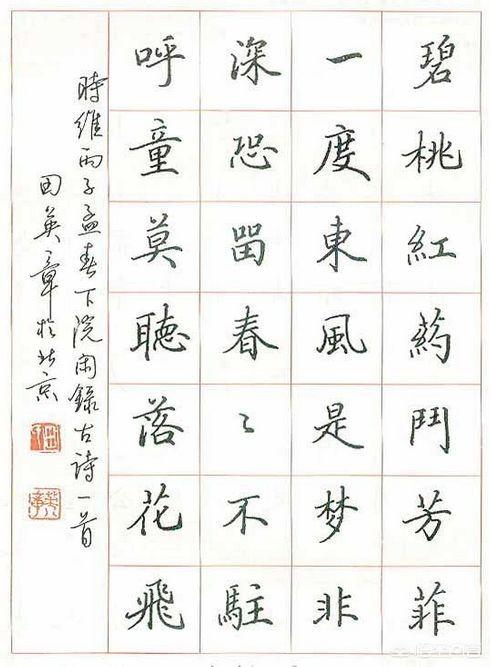 碧桃紅葯鬥芳菲
一度東風是梦非
深恐畱春〻不駐
呼童莫聽落花飛
時維丙子孟春下院闲錄古詩一首
田英章於北京
英章